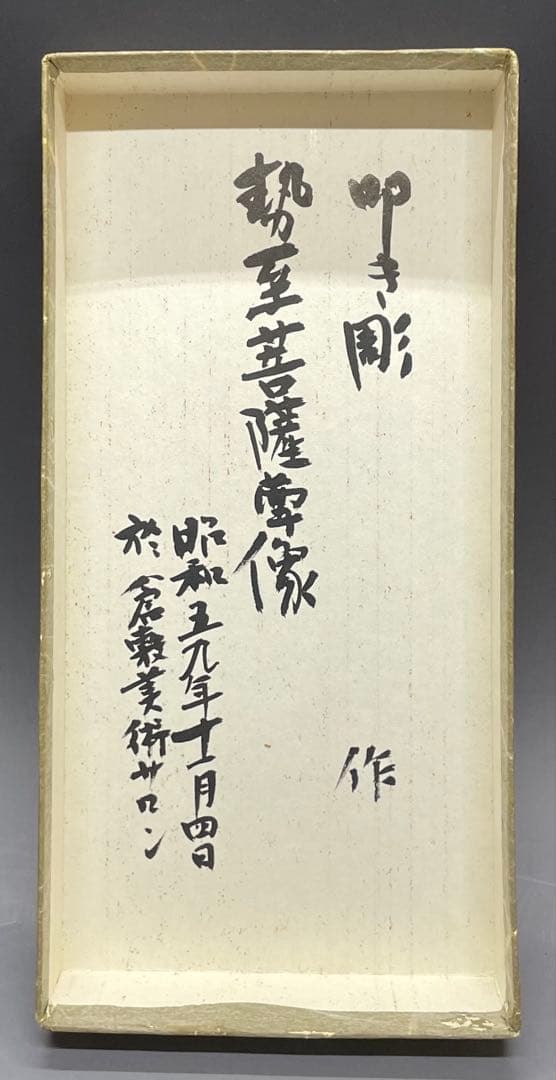 叩き彫 作
勢至菩薩尊像
昭和五九年十一月四日
於倉敷美術サロン